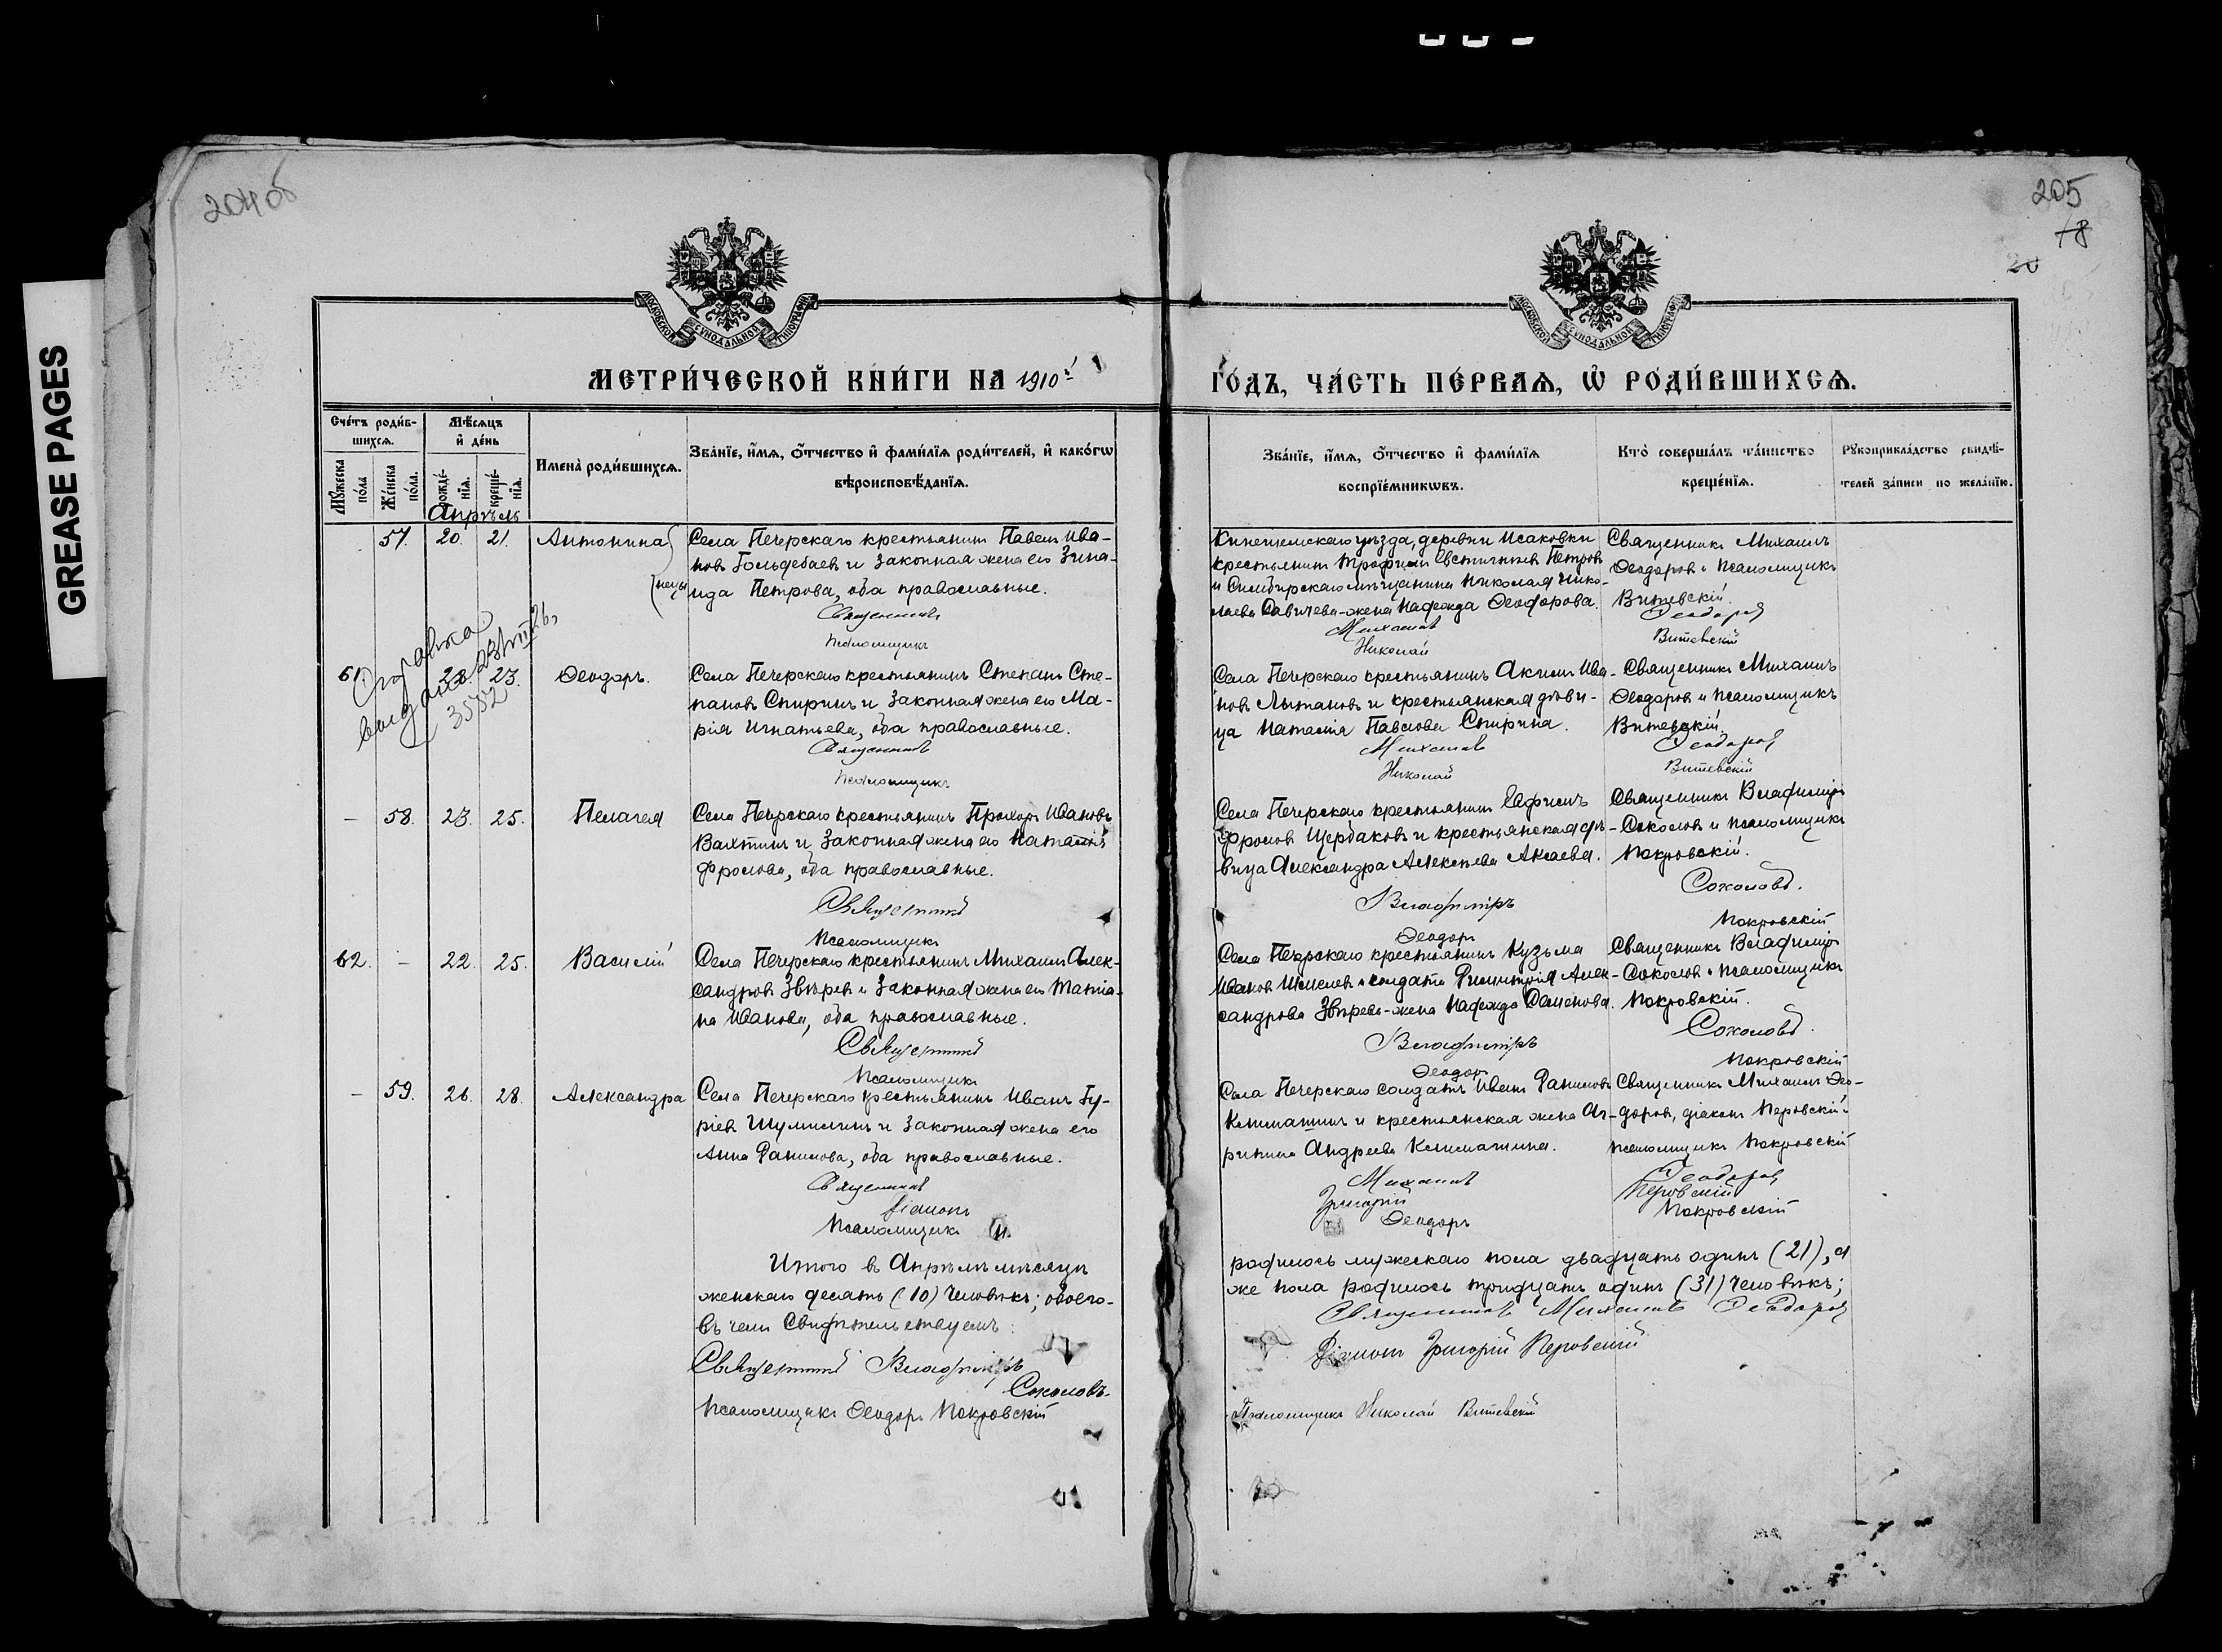 GREASE PAGES
204об
205
18
20
МОСКОВСКОЙ СУНОДАЛЬНОЙ ТИПОГРАФІИ
МОСКОВСКОЙ СУНОДАЛЬНОЙ ТИПОГРАФІИ
МЕТРИ́ЧЕСКОЙ КНИ́ГИ НА 1910й
ГО́ДЪ, ЧА́СТЬ ПЕ́РВАѦ, Ѡ҆ РОДИ́ВШИХСѦ.
Сче́тъ роди́в-
шихсѧ.
Мꙋ́жеска по́ла
Же́нска по́ла.
Мѣ́сѧцъ
и҆ де́нь
рожде́-
нїѧ.
креще́-
нїѧ.
Имена̀ роди́вшихсѧ.
Зва́нїе, и҆́мѧ, ѻ҆́тчество и҆ фами́лїѧ роди́телей, и҆ како́гѡ
вѣроисповѣ́данїѧ.
Зва́нїе, и҆́мѧ, ѻ҆́тчество и҆ фами́лїѧ
воспрїе́мникѡвъ.
Кто̀ соверша́лъ та́инство
креще́нїѧ.
Рꙋкоприкла́дство свидѣ́-
телей за́писи по жела́нїю.
Апрѣль
57. 20. 21. Антонина
Села Печерскаго крестьянинъ Павелъ Ива-
новъ Гольдебаевъ и законная жена его Зина-
ида Петрова, оба православные.
Священникъ
Псаломщикъ
Кинешемскаго уѣзда, деревни Исаковки
крестьянинъ Трофимъ Евстигнеевъ Петровъ
и Симбирскаго мѣщанина Николая Нико-
лаева Савичева-жена Надежда Ѳеодорова.
Михаилъ
Николай
Священникъ Михаилъ
Ѳеодоровъ и псаломщикъ
Витевскій.
Ѳеодоровъ
Витевскій
Справка
выдана 23/VII 26,
3552
61. 22. 23. Ѳеодоръ.
Села Печерскаго крестьянинъ Степанъ Сте-
пановъ Спиринъ и законная жена его Ма-
рія Игнатьева, оба православные.
Священникъ
Псаломщикъ
Села Печерскаго крестьянинъ Акимъ Ива-
новъ Лытановъ и крестьянская дѣви-
ца Наталія Павлова Спирина.
Михаилъ
Николай
Священникъ Михаилъ
Ѳеодоровъ и псаломщикъ
Витевскій.
Ѳеодоровъ
Витевскій
– 58. 23. 25. Пелагея
Села Печерскаго крестьянинъ Прохоръ Ивановъ
Вахтинъ и законная жена его Наталія
Фролова, оба православные.
Священникъ
Псаломщикъ
Села Печерскаго крестьянинъ Ефимъ
Фроловъ Щербаковъ и крестьянская дѣ-
вица Александра Алексѣева Акаева.
Владиміръ
Ѳеодоръ
Священникъ Владиміръ
Соколовъ и псаломщикъ
Покровскій.
Соколовъ.
Покровскій
62. – 22. 25. Василій
Села Печерскаго крестьянинъ Михаилъ Алек-
сандровъ Звѣревъ и законная жена его Татіа-
на Иванова, оба православные.
Священникъ
Псаломщикъ
Села Печерскаго крестьянинъ Кузьма
Ивановъ и солдата Алек-
сандрова Звѣрева-жена Надежда Семенова.
Владиміръ
Ѳеодоръ
Священникъ Владиміръ
Соколовъ и псаломщикъ
Покровскій.
Соколовъ.
Покровскій
– 59. 26. 28. Александра
Села Печерскаго крестьянинъ Иванъ Гу-
ріевъ Шумилинъ и законная жена его
Анна Данилова, оба православные.
Священникъ
Діаконъ
Псаломщикъ
Села Печерскаго солдатъ Иванъ Даниловъ
Климашинъ и крестьянская жена Аг-
рипина Андреева Климашина.
Михаилъ
Григорій
Ѳеодоръ
Священникъ Михаилъ Ѳео-
доровъ, діаконъ Перовскій и
псаломщикъ Покровскій
Ѳеодоровъ
Перовскій
Покровскій
Итого въ Апрѣлѣ мѣсяцѣ
женскаго десять (10) человѣкъ; обоего-
въ чемъ свидѣтельствуемъ:
Священникъ Владиміръ
Соколовъ.
Псаломщикъ Ѳеодоръ Покровскій
родилось мужескаго пола двадцать одинъ (21), а
же пола родилось тридцать одинъ (31) человѣкъ;
Священникъ Михаилъ Ѳеодоровъ
Діаконъ Григорій Перовскій
Псаломщикъ Николай Витевскій